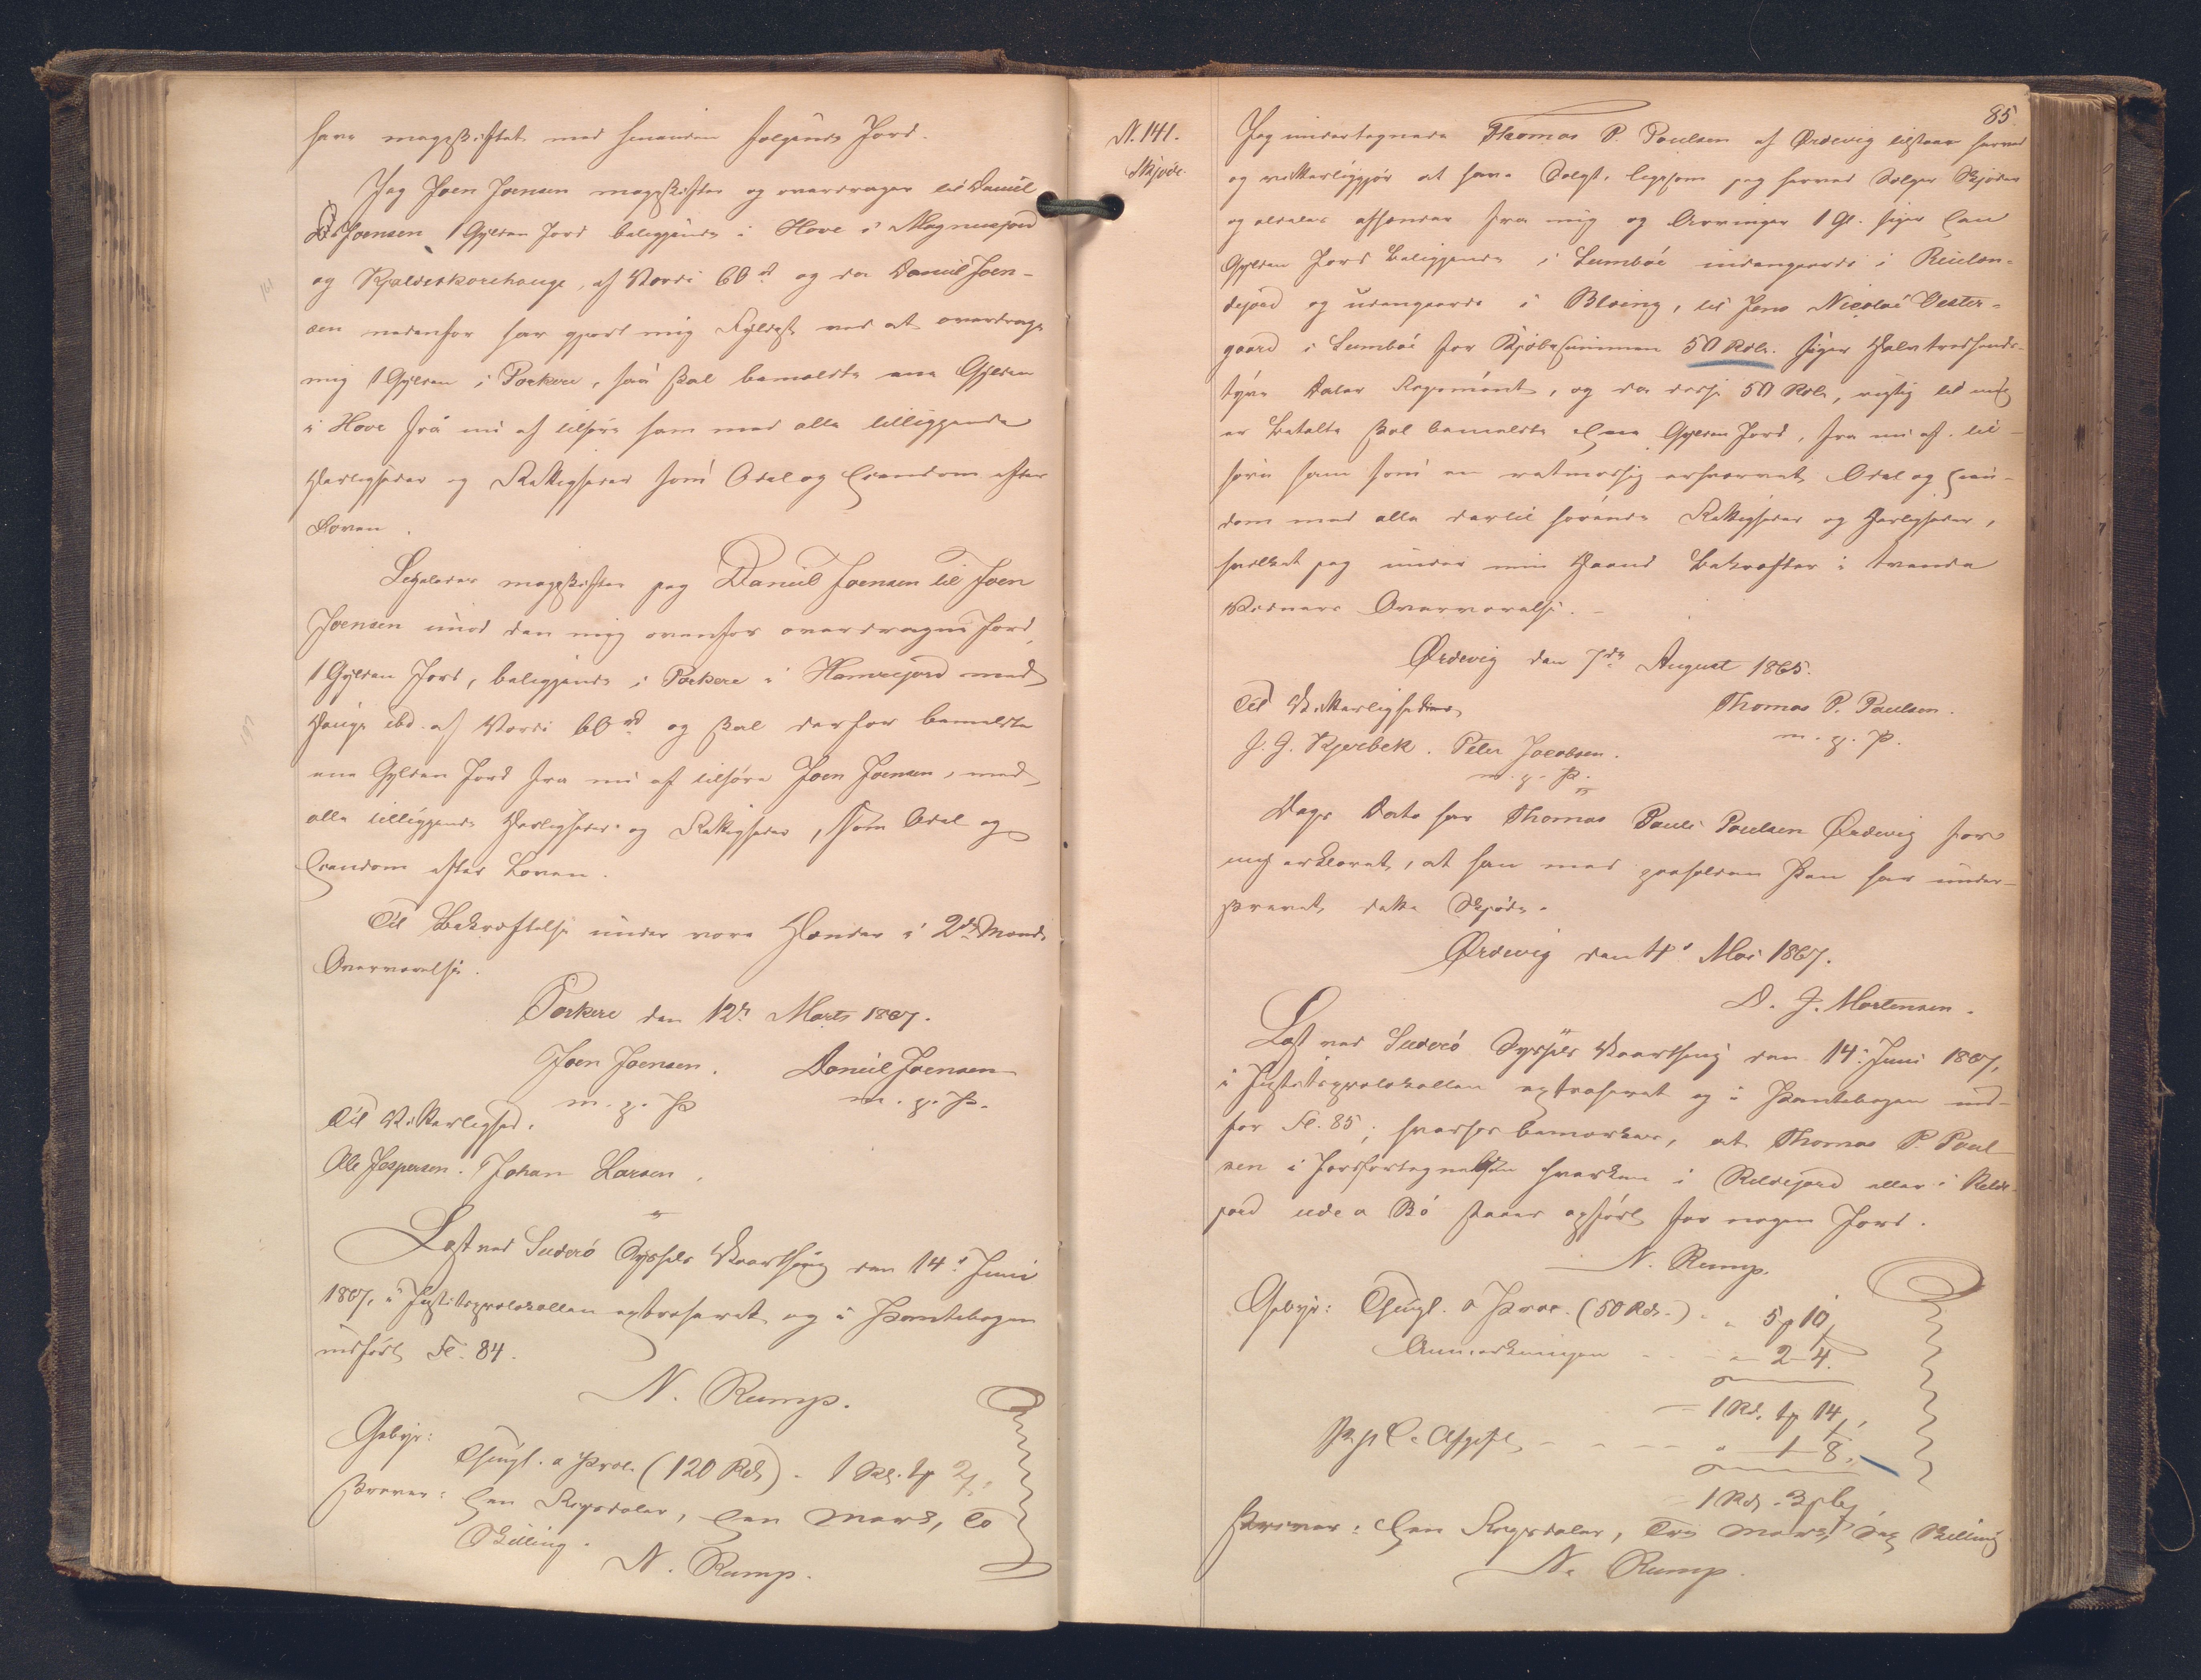 have mageskiftet med hinanden følgende Jord.
Jeg Joen Joensen mageskifter og overdrager til Daniel
Joensen 1 Gylden Jord beliggende i Hove i Magnusjord
og Kjeldeskorehauge, af Værdi 60 rd og da Daniel Joen-
sen nedenfor har gjort mig Fyldest ved at overdrage
mig 1 Gylden i Porkere, saa skal bemeldte ene Gylden
i Hove fra nu af tilhøre ham med alle tilliggende
Herligheder og Rettigheder som Odel og Eiendom efter
Loven.
Ligeledes mageskifter jeg Daniel Joensen til Joen
Joensen imod den mig ovenfor overdragne Jord,
1 Gylden Jord, beliggende i Porkere i Hamrejord med
Hauge ibd. af Værdi 60 rd og skal derfor bemeldte
ene Gylden Jord fra nu af tilhøre Joen Joensen, med
alle tilliggende Herligheder og Rettigheder, som Odel og
Eiendom efter Loven.
Til Bekræftelse under vore Hænder i 2de Mænds
Overværelse.
Porkere den 12te Marts 1867.
Joen Joensen. Daniel Joensen
m. p. P. m. p. P.
Til Vitterlighed.
Ole Jespersen. Johan Larsen.
Læst ved Suderø Syssels Vaarthing den 14de Juni
1867, i Justitsprotokollen extraheret og i Pantebogen
indført Fol. 84.
N. Rump.
Gebyr:
Thingl. a Proc. (120 Rdl) - 1 Rd. 1 ф 2 ,
skriver: Een Rigsdaler, Een Mark, To
Skilling.
N. Rump.
85.
N. 141.
Skjøde.
Jeg undertegnede Thomas P. Poulsen af Ørdevig tilstaar herved
og vitterliggjør at have Solgt, ligesom jeg herved Sælger Skjøder
og aldeles afhænder fra mig og Arvinger 1 Gl. siger Een
Gylden Jord beliggende i Sumbøe indengaerds i
dejord og udengaerds i , til Jens Nicolai Vester-
gaard i Sumbøe for Kjøbesummen 50 Rdlr. siger Halvtredsinds-
tyve Daler Rigsmønt, og da disse 50 Rdlr, rigtig til mig
er Betalte skal bemeldte Een Gylden Jord, fra nu af til-
høre ham som en retmæssig erhvervet Odel og Eien-
dom med alle dertil hørende Rettigheder og Herligheder,
hvilket jeg under min Haand Bekræfter i tvende
Vidners Overværelse.
Ørdevig den 7de August 1865.
Til Vitterlighed Thomas P. Poulsen.
J. J. Kjerbek. Peter Jacobsen. m. p. P.
m. p. P.
Dags Dato har Thomas Pauli Poulsen Ørdevig for
mig erklæret, at han med paaholden Pen har under-
skrevet dette Skjøde.
Ørdevig den 4de Mai 1867.
D. J. Mortensen.
Læst ved Suderø Syssels Vaarthing den 14de Juni 1867,
i Justitsprotokollen extraheret og i Pantebogen ind-
før Fol. 85; hvorhos bemærkes, at Thomas P. Poul-
sen i Jordfortegnelsen hverken i Reldejord eller i Relde
jord ude a Bø staaer opført for nogen Jord.
N. Rump.
Gebyr: Thingl. a Proc. (50 Rdr.) - " 5 ф 10,
Anmærkningen - - " 2 - 4.
1 Rd. 2 ф 14,
Afgift - - - " 1 - 8.
1 Rd. 3 ф 6,
skriver: Een Rigsdaler, Tre Mark, Sex Skilling
N. Rump.